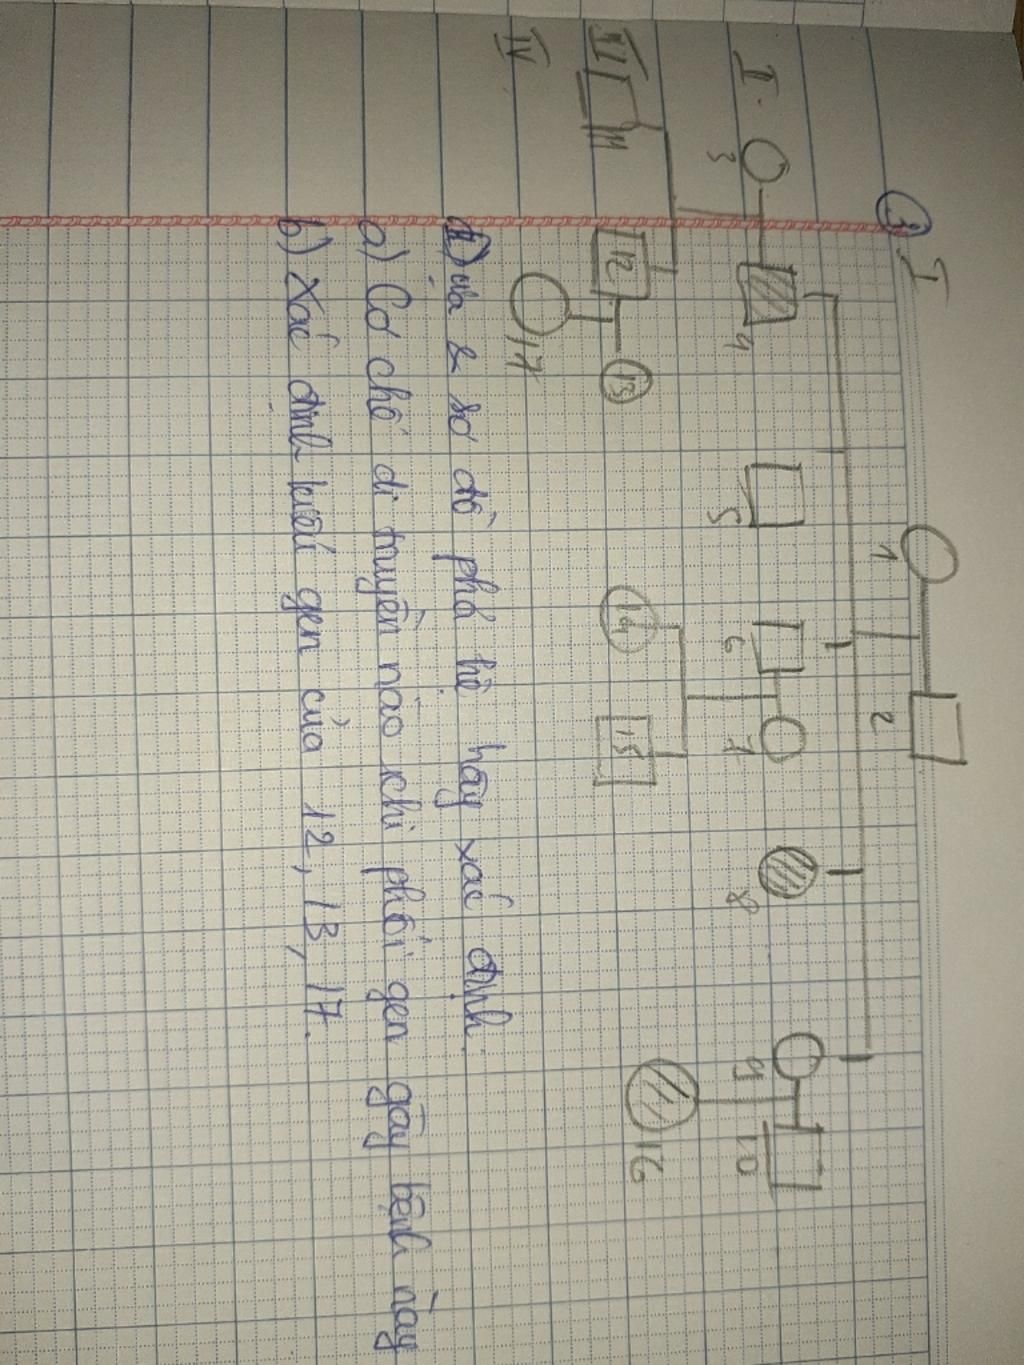 3
I
1 2
II
3 4 5 6 7 8 9 10
III
11 12 13 14 15 16
IV
17
sơ đồ phả hệ hãy xác định:
a) Cơ chế di truyền nào chi phối gen gây bệnh này
b) Xác định kiểu gen của 12, 13, 17.